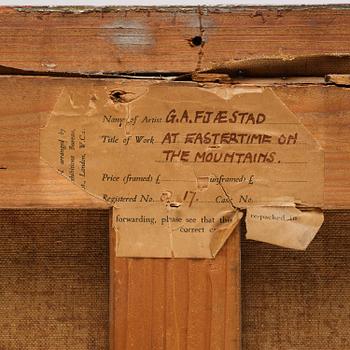 Name of Artist G.A. FJÆSTAD
Title of Work AT EASTERTIME ON
THE MOUNTAINS.
Price (framed) £ unframed) £
Registered No. 17. Case No.
forwarding, please see that this re-packed in
correct
arranged by
Bureau,
London, W.C.